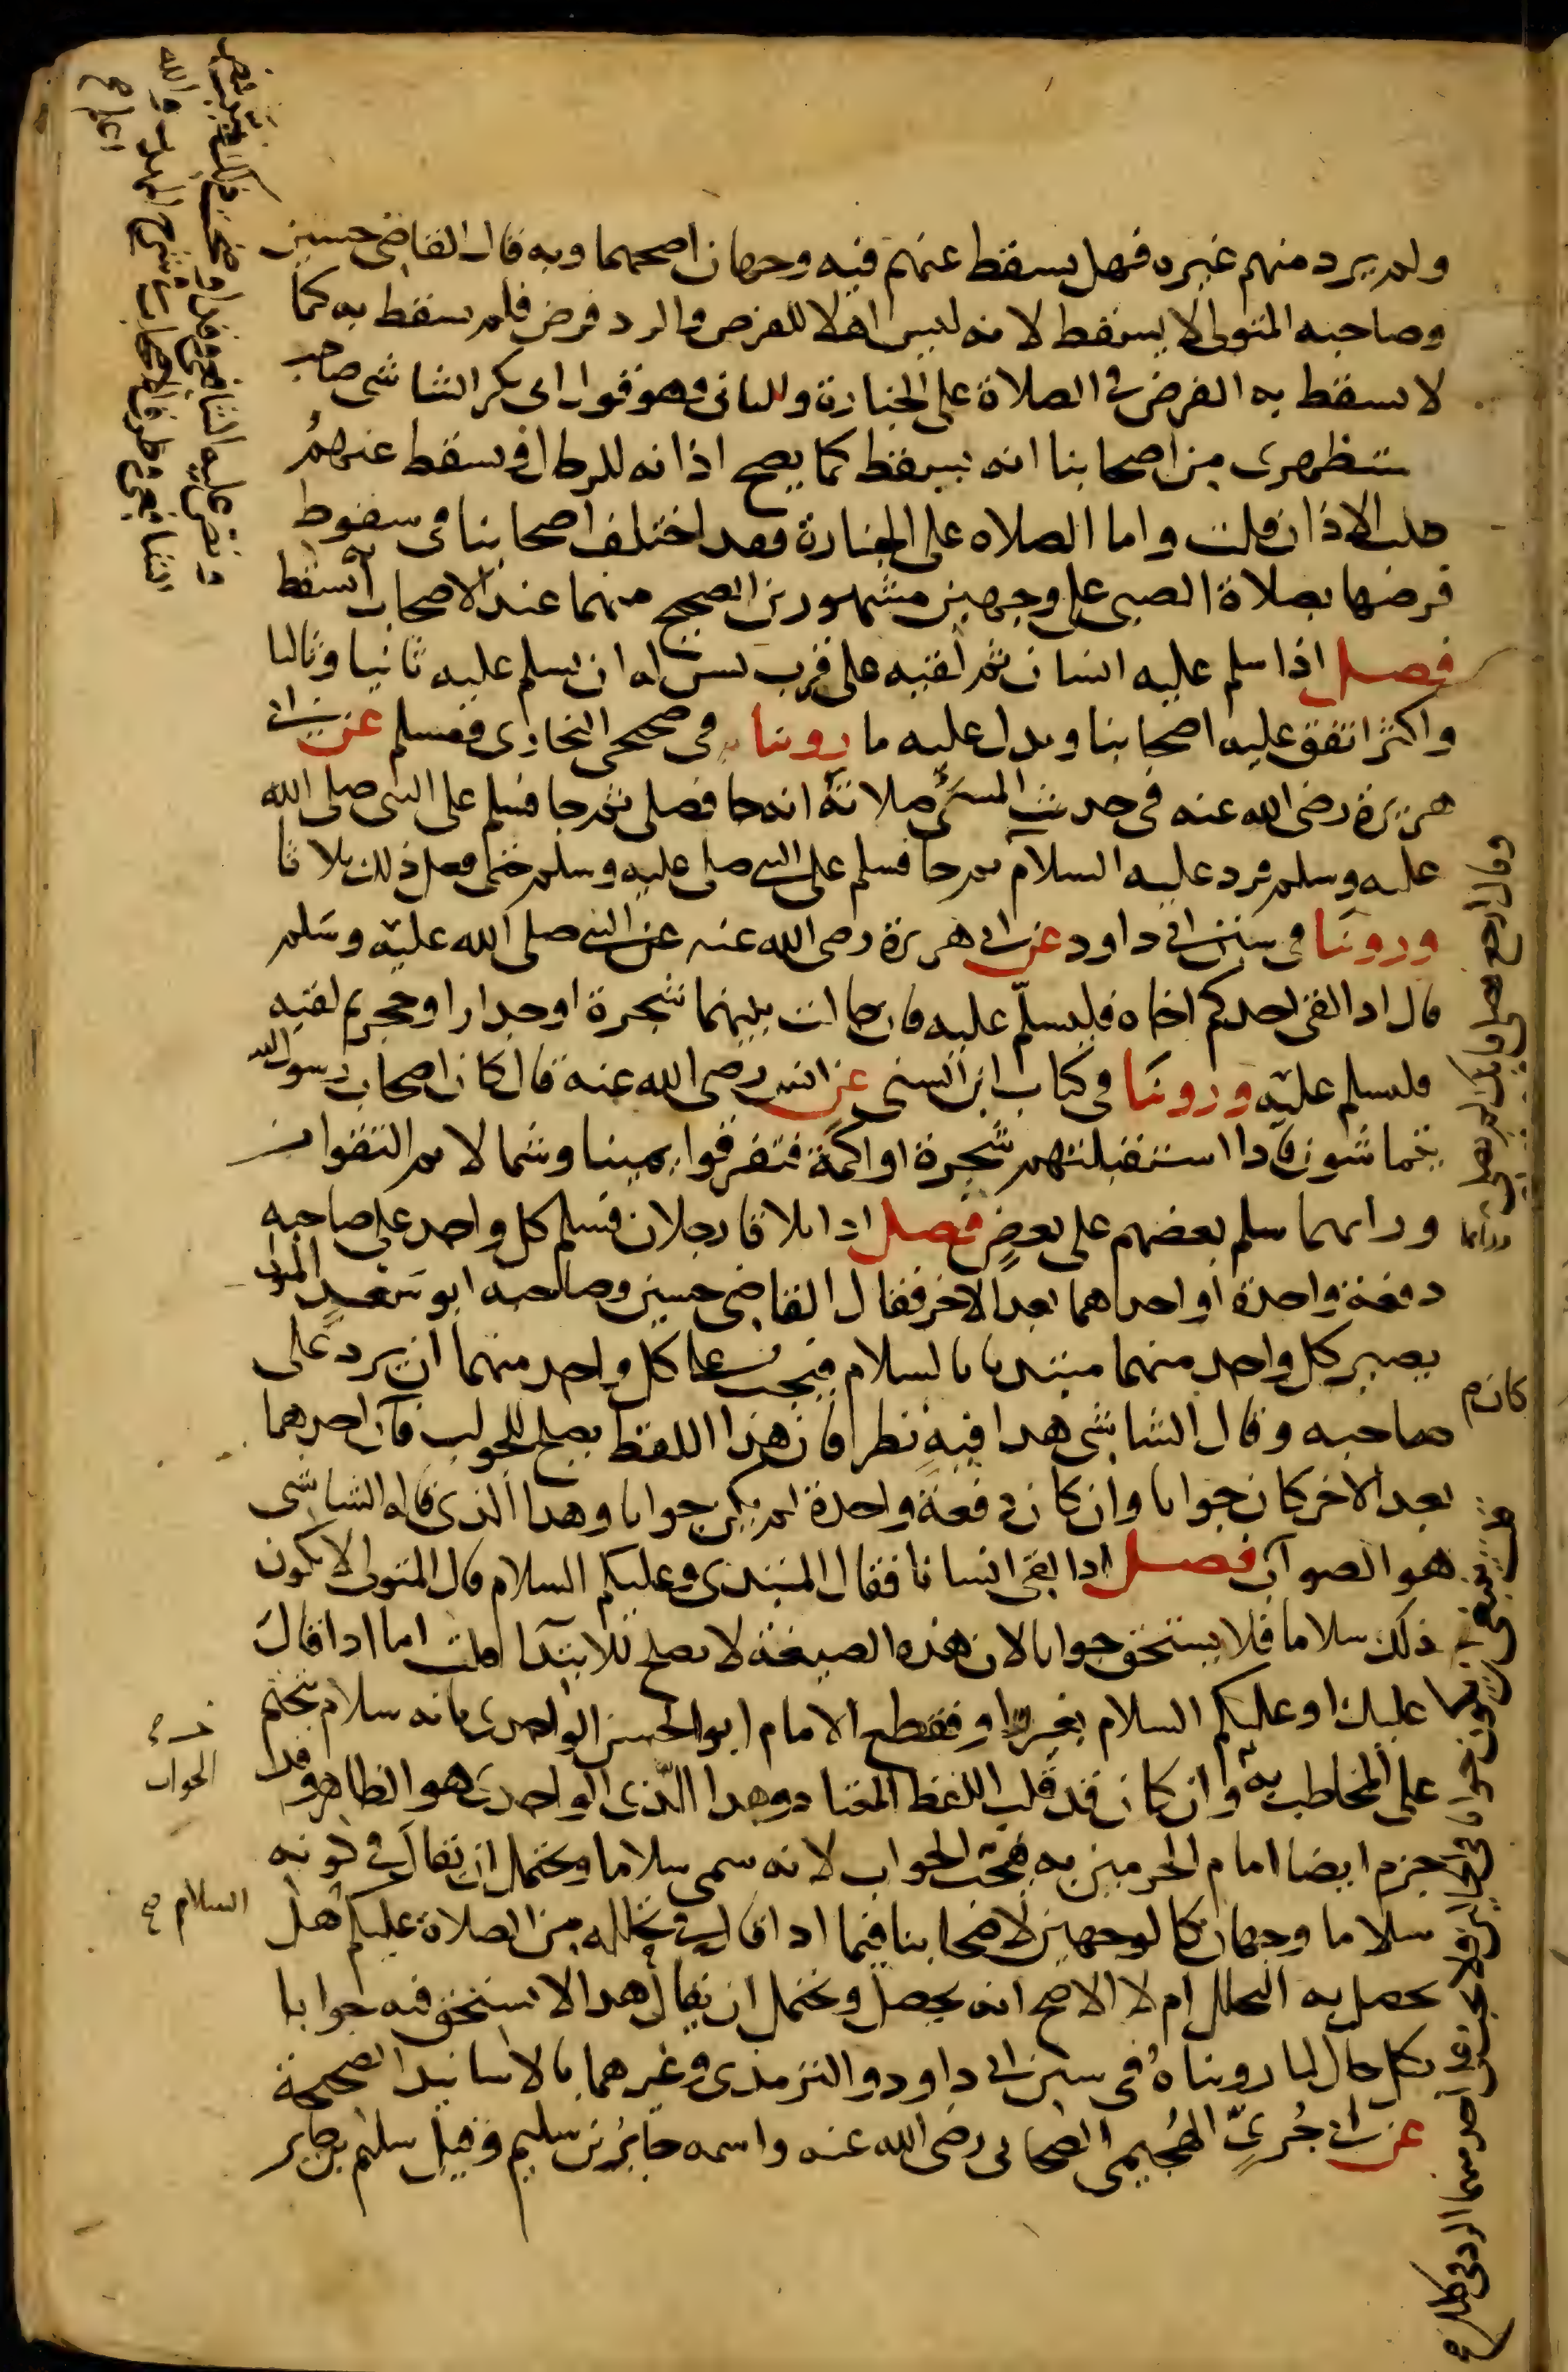 ولم يرد منهم غيره فهل يسقط عنهم فيه وجهان اصحهما وبه قال القاضي حسين
وصاحبه المتولي لا يسقط لانه ليس اهلا للفرض والرد فرض فلم يسقط به كما
لا يسقط به الفرض في الصلاة على الجنازة والثاني وهو قول ابي بكر الشاشي صاحب
المستظهري من اصحابنا انه يسقط كما يصح اذانه للرجال ويسقط عنهم
طلب الاذان قلت واما الصلاه على الجنازة فقد اختلف اصحابنا في سقوط
فرضها بصلاة الصبي على وجهين مشهورين الصحيح منهما عند الاصحاب انه يسقط
ونص عليه الشافعي
والله
اعلم
فصل اذا سلم عليه انسان ثم لقيه على قرب يسن له ان يسلم عليه ثانيا وثالثا
واكثر اتفق عليه اصحابنا ويدل عليه ما روينا في صحيحي البخاري ومسلم عن ابي
هريرة رضي الله عنه في حديث المسيء صلاته انه جا فصلى ثم جا فسلم على النبي صلى الله
عليه وسلم فرد عليه السلام
ثم جا فسلم على النبي صلى عليه وسلم حتى فعل ذلك ثلاثا
وروينا في سنن ابي داود عن ابي هريرة رضي الله عنه عن النبي صلى الله عليه وسلم
قال اذا لقي احدكم اخاه فليسلم عليه فان حالت بينهما شجرة او جدار او حجر ثم لقيه
فليسلم عليه وروينا في كتاب ابن السني عن انس رضي الله عنه قال كان اصحاب رسول الله
يتماشون فاذا استقبلتهم شجرة او اكمة فتفرقوا يمينا وشمالا ثم التقوا من
ورائهما سلم بعضهم على بعض فصل اذا تلاقا رجلان فسلم كل واحد على صاحبه
دفعة واحدة او احداهما بعد الاخر فقال القاضي حسين وصاحبه ابو سعد المتولي
يصير كل واحد منهما مبتديا بالسلام فيجب على كل واحد منهما ان يرد على
صاحبه وقال الشاشي هذا فيه نظر فان هذا اللفظ يصلح للجواب فان احدهما
كان
بعد الاخر كان جوابا وان كان دفعة واحدة لم يكن جوابا وهذا الذي قاله الشاشي
هو الصواب فصل اذا لقي انسانا فقال المبتدي وعليكم السلام قال المتولي لا يكون
ذلك سلاما فلا يستحق جوابا لان هذه الصيغة لا تصلح للابتدا قلت اما اذا قال
عليك او عليكم السلام بغير واو فقطع الامام ابو الحسن الواحدي بانه سلام يتحتم
على المخاطب به وان كان قد قلب اللفظ المعتاد وهذا الذي الواحدي هو الظاهر وقد
الجواب
جزم ايضا امام الحرمين به فيجب الجواب لانه سمى سلاما ويحتمل ان يقال في كونه
سلاما وجهان كالوجهين لاصحابنا فيما اذا قال في تحلله من الصلاة عليكم هل
السلام
يحصل به التحلل ام لا الاصح انه يحصل ويحتمل ان يقال هذا لا يستحق فيه جوابا
بكل حال لما رويناه في سنن ابي داود والترمذي وغيرهما بالاسانيد الصحيحة
عن ابي جري الهجيمي الصحابي رضي الله عنه واسمه جابر بن سليم وقيل سليم بن جابر